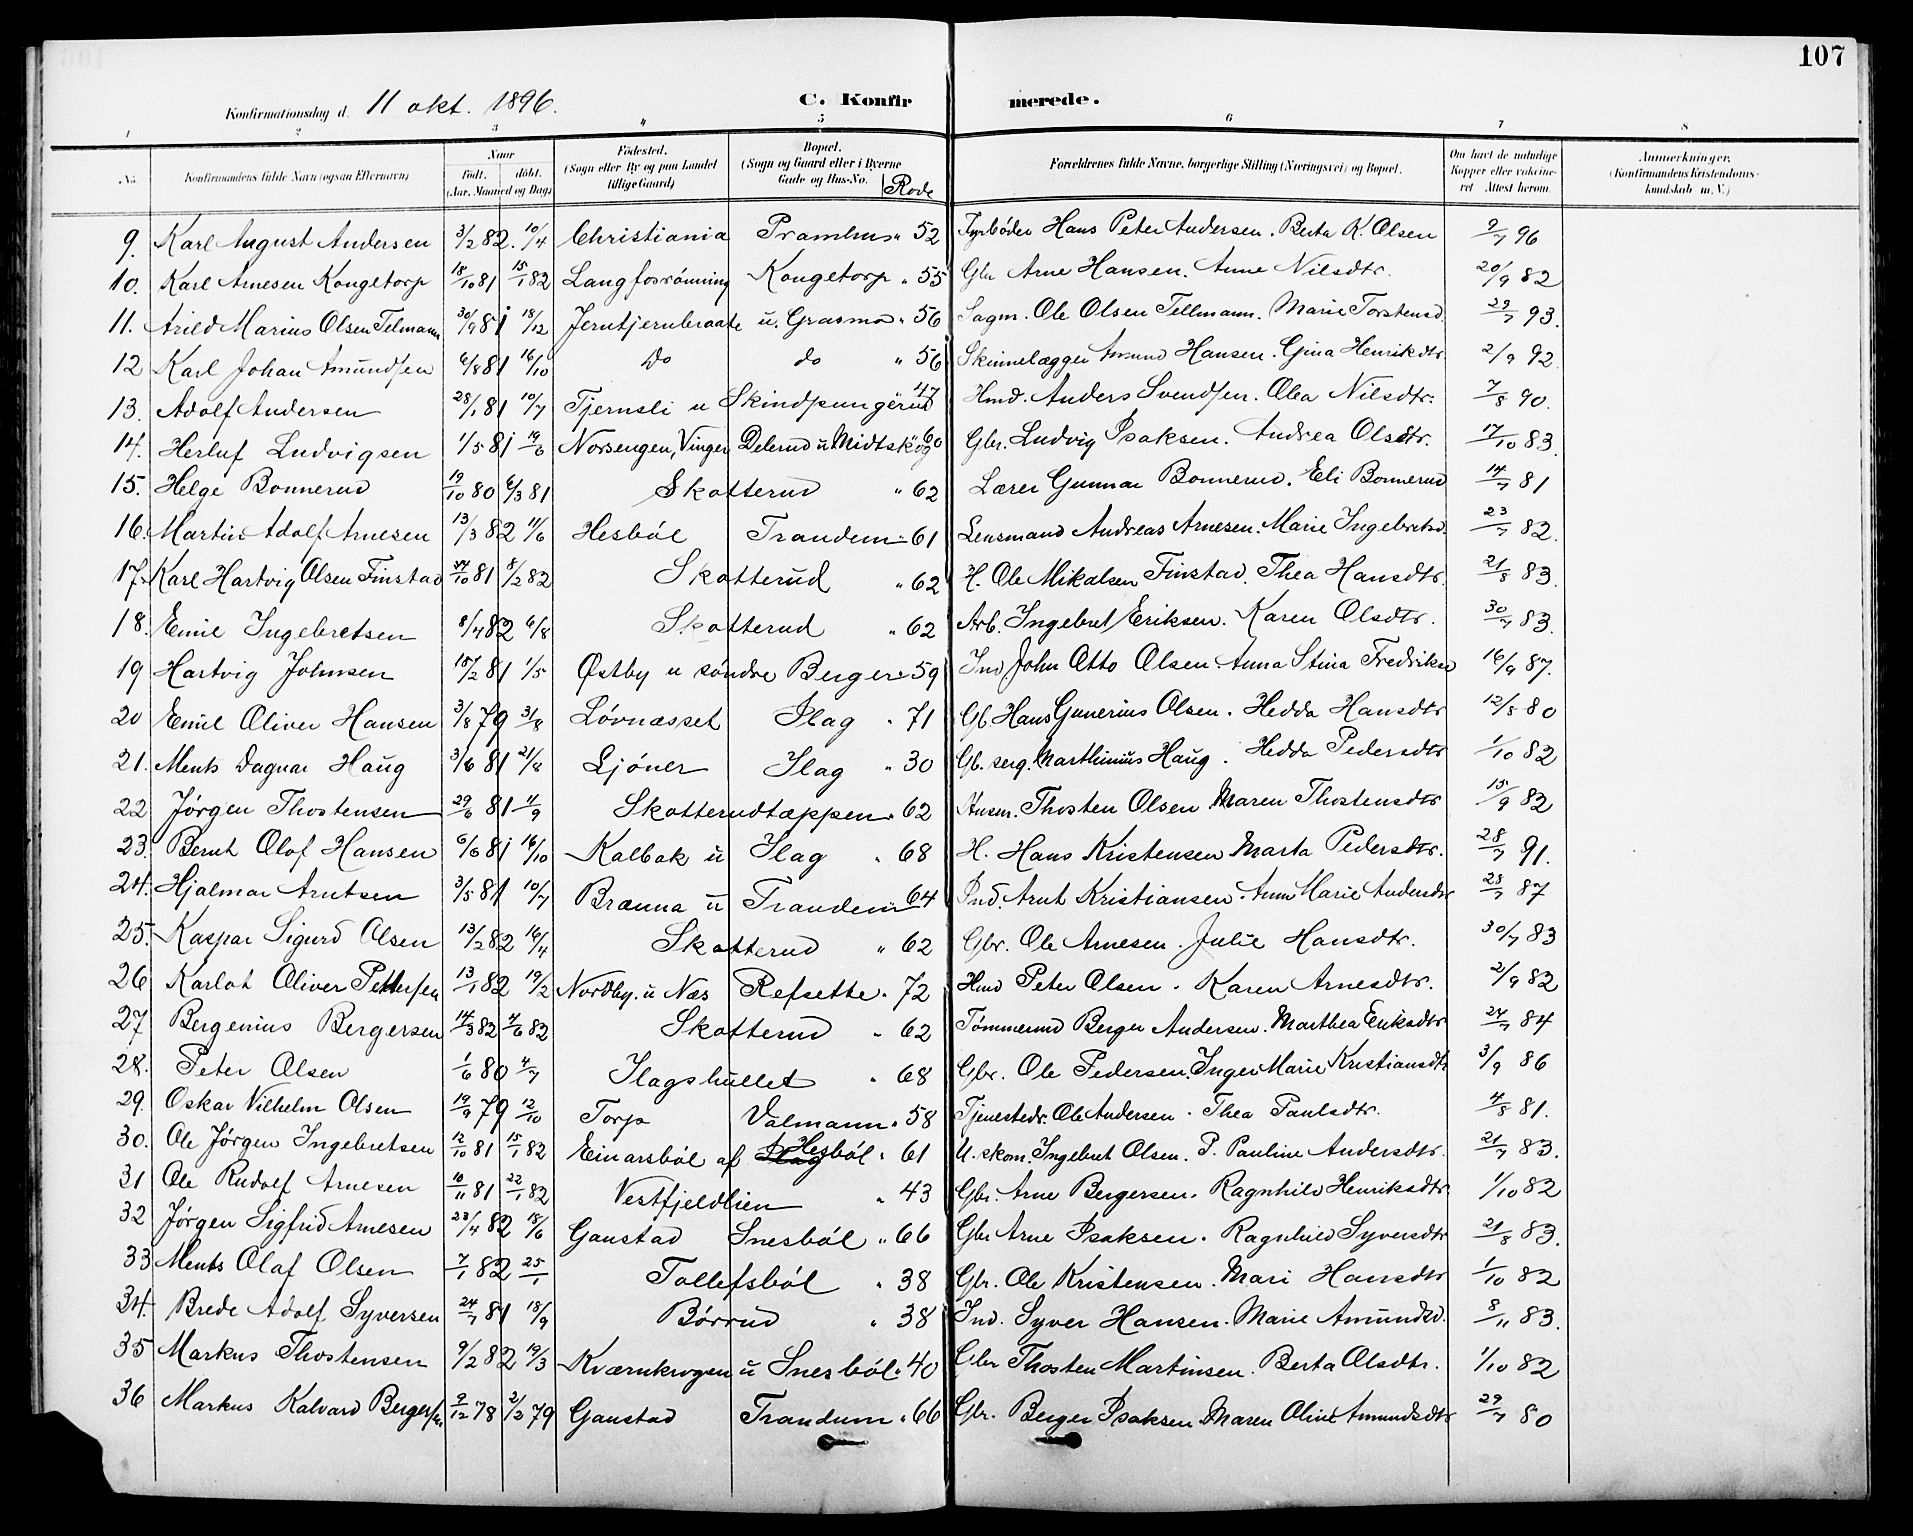 107
Konfirmationsdag d. 11 okt. 1896.
C. Konfirmerede.
1 2 3 4 5 6 7 8
No. Konfirmandens fulde Navn (ogsaa Efternavn) Naar født. døbt. (Aar, Maaned og Dag) Fødested. (Sogn eller By og paa Landet tillige Gaard) Bopæl. (Sogn og Gaard eller i Byerne Gade og Hus-No. Rode Forældrenes fulde Navne, borgerlige Stilling (Næringsvei) og Bopæl. Om havt de naturlige Kopper eller vaccineret Attest herom. Anmerkninger. (Konfirmandens Kristendomskundskab m. V.)
9. Karl August Andersen 3/2 82. 10/4 Christiania Pramhus " 52 Fyrbøder Hans Peter Andersen. Berta K. Olsen 9/7 96
10. Karl Arnesen Kongetorp 18/10 81 15/1 82 Langfosrønning Kongetorp " 55 Gbr Arne Hansen. Anne Nilsdtr. 20/9 82
11. Arild Marius Olsen Telmann 30/9 81 18/12 Jerntjernbraate u. Grasmo " 56 Sagm. Ole Olsen Tellmann. Marie Torstensd. 29/7 93.
12 Karl Johan Amundsen 6/8 81 16/10 Do do " 56 Skinnelægger Amund Hansen. Gina Henrikdtr. 2/9 92.
13. Adolf Andersen 28/1 81 10/7 Tjernsli u Skindpungerud 47 Hmd. Anders Svendsen. Olea Nilsdtr. 7/8 90.
14. Herluf Ludvigsen 1/5 81 19/6 Norsengen, Vinger Delerud u Midtskog 60 Gbr. Ludvig Isaksen. Andrea Olsdtr. 17/10 83.
15. Helge Bonnerud 19/10 80 6/3 81 Skotterud " 62 Lærer Gunnar Bonnerud. Eli Bonnerud 14/7 81
16. Martin Adolf Arnesen 13/3 82 11/6 Hesbøl Trandem " 61 Lensmand Andreas Arnesen. Marie Ingebretsd. 23/7 82.
17. Karl Hartvig Olsen Finstad /10 81 8/2 82 Skotterud " 62 H. Ole Mikalsen Finstad. Thea Hansdtr. 21/8 83.
18. Emil Ingebretsen 8/4 82 6/8 Skotterud " 62 Arb. Ingebret Eriksen. Karen Olsdtr. 30/7 83.
19 Hartvig Johnsen 15/2 81 1/5 Østby u søndre Berger " 59 Ind John Otto Olsen. Anna Stina Fredriksd 16/9 87.
20 Emil Oliver Hansen 3/8 79 31/8 Løvnæsset Ilag " 71 Gb. Hans Gunerius Olsen. Hedda Hansdtr 12/8 80
21. Ments Dagnar Haug 3/6 81 21/8 Ljøner Ilag " 30 Gb. serg. Marthinius Haug. Hedda Pedersdtr 1/10 82
22 Jørgen Thostensen 29/6 81 11/9 Skotterudtæppen " 62 Husm. Thosten Olsen Maren Thostensdtr 15/9 82
23. Bernt Olof Hansen 6/6 81 16/10 Kalbak u Ilag " 68 H. Hans Kristensen Marta Pedersdtr. 28/7 91.
24. Hjalmar Arntsen 3/5 81 10/7 Brænna u Trandem " 64 Ind. Arnt Kristiansen. Ann Marie Andersdtr 23/7 87
25. Kaspar Sigurd Olsen 13/2 82 16/4 Skotterud " 62 Gbr. Ole Arnesen. Julie Hansdtr. 30/7 83
26 Karlot Oliver Pettersen 13/1 82 19/2 Nordby. u Næs Refsette " 72 Hmd Peter Olsen. Karen Arnesdtr. 2/9 82
27 Bergenius Bergersen 14/3 82 4/6 82 Skotterud " 62 Tømmermd Berger Andersen. Marthea Eriksdtr 24/7 84
28. Peter Olsen 1/6 80 4/7 Ilagshullet " 68 Gbr. Ole Pedersen. Inger Marie Kristiansdtr 3/9 86
29. Oskar Vilhelm Olsen 19/9 79 12/10 Torp Valmann " 58 Tjenestedr. Ole Andersen. Thea Paulsdtr. 4/8 81.
30. Ole Jørgen Ingebretsen 12/10 81 15/1 82 Einarsbøl af Hesbøl " 61 U. skom. Ingebret Olsen. P. Pauline Andersdtr. 21/7 83.
31 Ole Rudolf Arnesen 10/11 81 22/1 82 Vestfjeldlien " 43 Gbr. Arne Bergersen. Ragnhild Henriksdtr. 1/10 82
32 Jørgen Sigfrid Arnesen 23/4 82 18/6 Ganstad Snesbøl " 66 Gbr Arne Isaksen. Ragnhild Syversdtr 21/8 83.
33 Ments Olaf Olsen 7/1 82 25/1 Tollefsbøl " 38 Gbr. Ole Kristensen. Mari Hansdtr 1/10 82
34. Brede Adolf Syversen 24/7 81 18/9 Børrud " 38 Ind. Syver Hansen. Marie Amundsd. 8/11 83.
35 Markus Thostensen 9/2 82 19/3 Kværnkrogen u Snesbøl " 40 Gbr Thosten Martinsen. Berta Olsdtr. 1/10 82
36 Markus Kalvard Bergersen 9/12 78 2/2 79 Ganstad Trandum " 66 Gbr. Berger Isaksen Maren Oline Amundsdtr 29/7 80